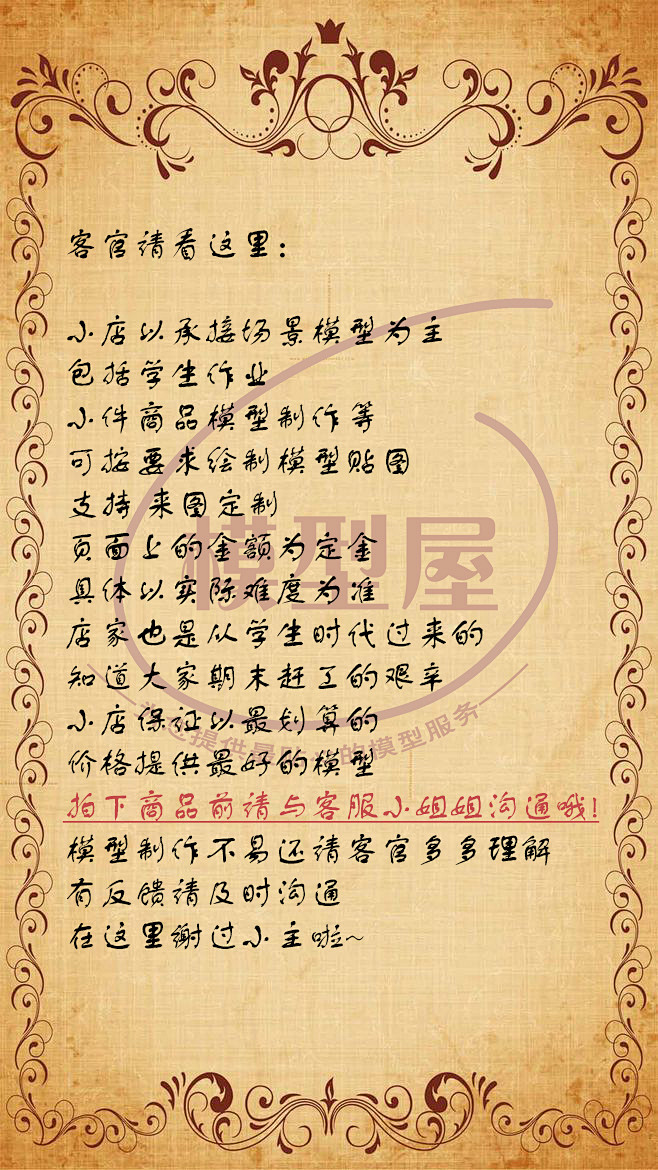 客官请看这里：
小店以承接场景模型为主
包括学生作业
小件商品模型制作等
可按要求绘制模型贴图
支持 来图定制
页面上的金额为定金
具体以实际难度为准
店家也是从学生时代过来的
知道大家期末赶工的艰辛
小店保证以最划算的
价格提供最好的模型
拍下商品前请与客服小姐姐沟通哦！
模型制作不易还请客官多多理解
有反馈请及时沟通
在这里谢过小主啦~
模型屋